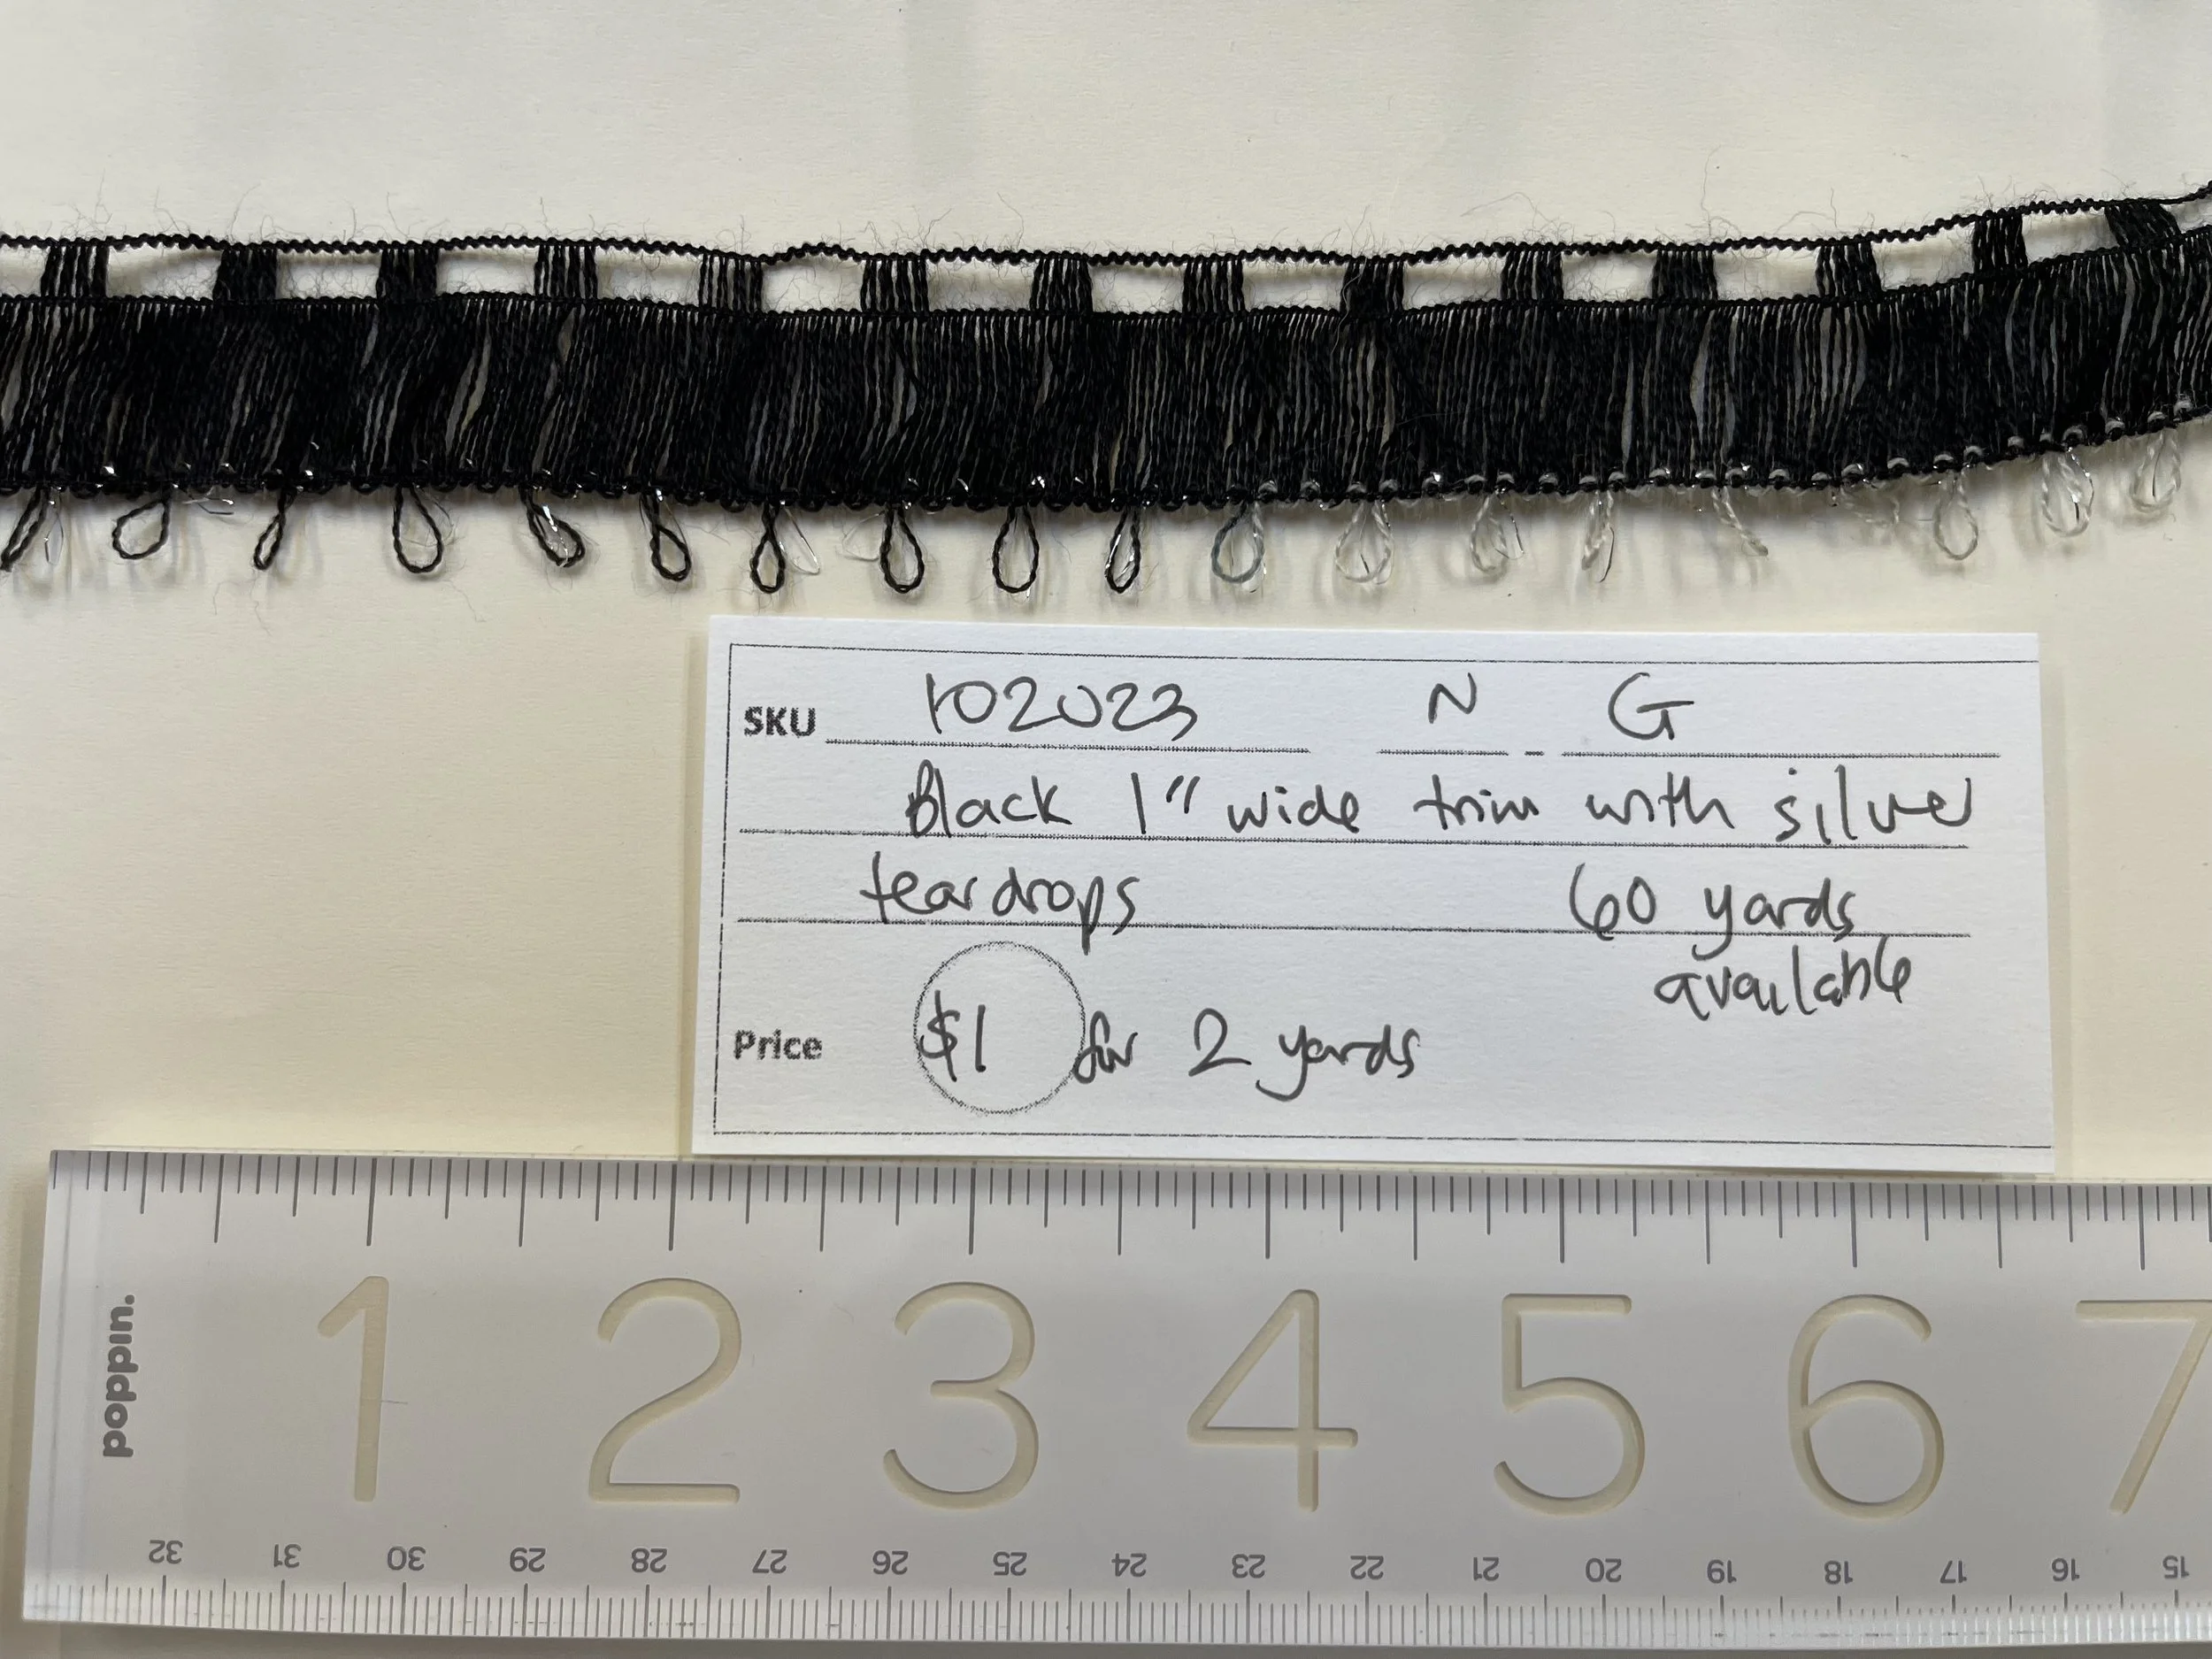 SKU 102023 N - G
Black 1" wide trim with silver
teardrops 60 yards
available
Price $1 for 2 yards
poppin.
1 2 3 4 5 6 7
32 31 30 29 28 27 26 25 24 23 22 21 20 19 18 17 16 15